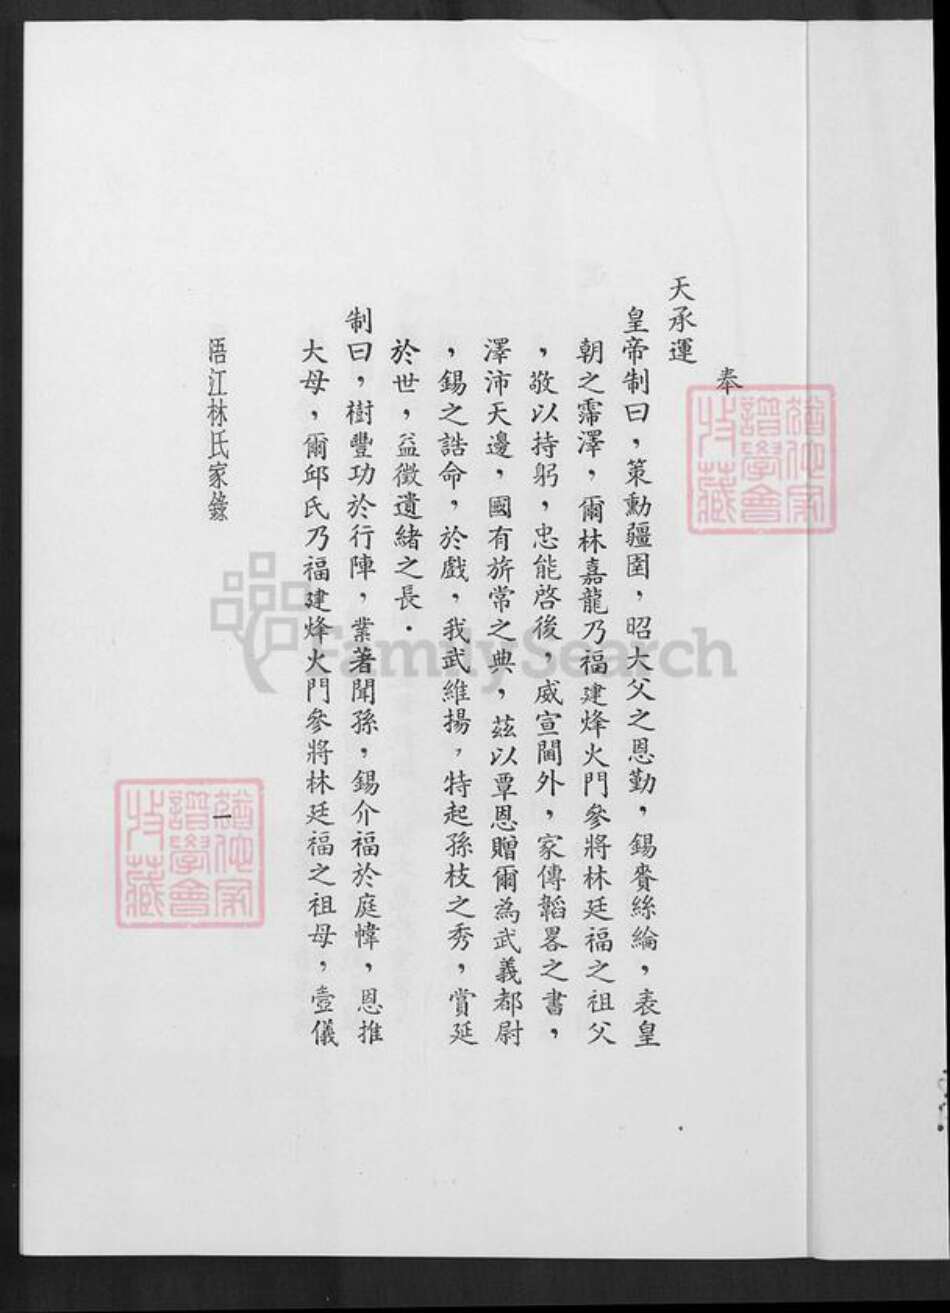 奉
天承運
皇帝制曰，策勳疆圉，昭大父之恩勤，錫賚絲綸，表皇
朝之霈澤，爾林嘉龍乃福建烽火門參將林廷福之祖父
，敬以持躬，忠能啓後，威宣閫外，家傳韜畧之書，
澤沛天邊，國有旂常之典，茲以覃恩贈爾為武義都尉
，錫之誥命，於戲，我武維揚，特起孫枝之秀，賞延
於世，益徵遺緒之長．
制曰，樹豐功於行陣，業著聞孫，錫介福於庭幃，恩推
大母，爾邱氏乃福建烽火門參將林廷福之祖母，壼儀
浯江林氏家錄
一
譜學會
收藏
譜學會
收藏
FamilySearch